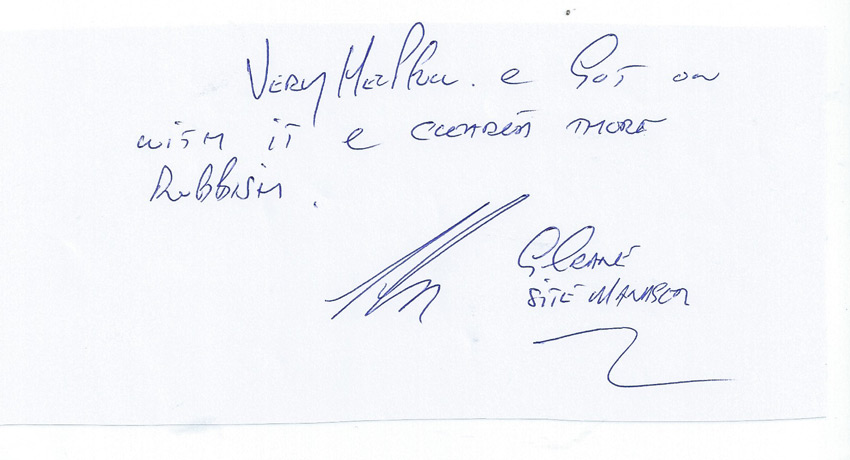 Very Helpful. & Got on
with it & cleared more
Rubbish.
Site Manager